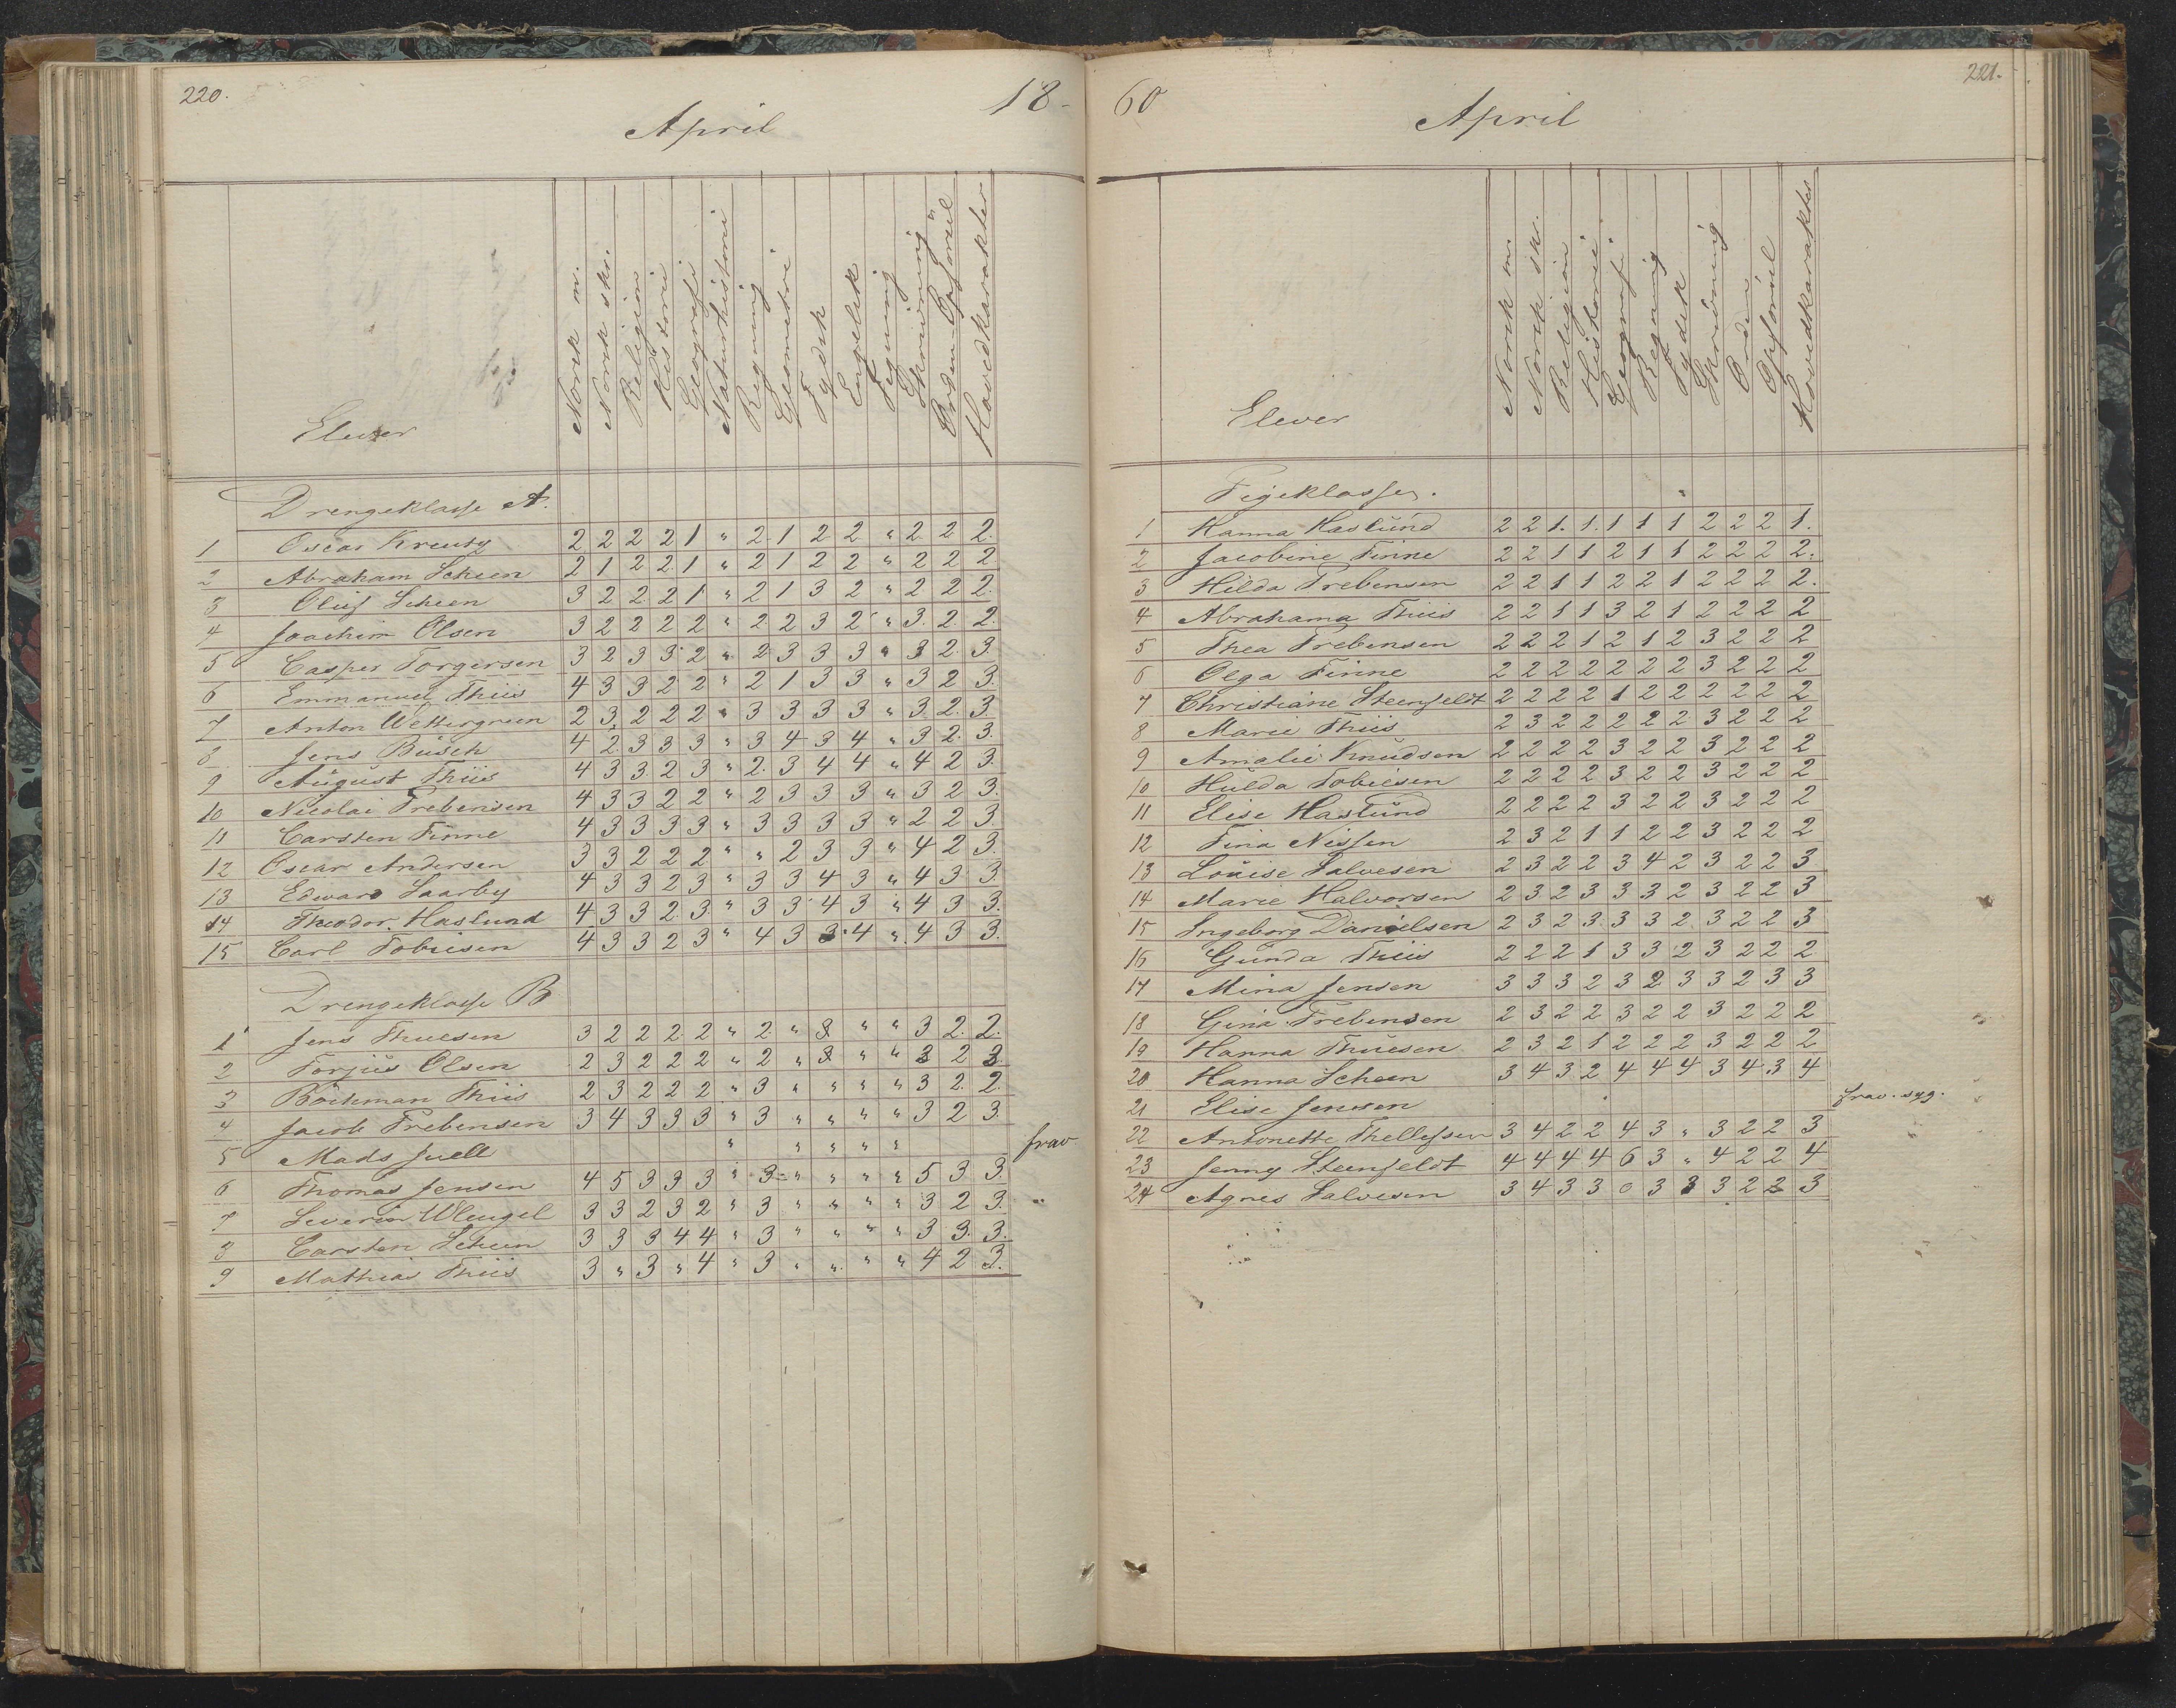 220.
18-
April
Elever
Norsk m.
Norsk skr.
Religion
Historie
Geografi
Naturhistorie
Regning
Geometrie
Tydsk
Engelsk
Tegning
Skrivning
Orden Opførsel
Hovedkarakter
Drengeklasse A.
1 Oscar Kreutz 2 2 2 2 1 " 2 1 2 2 " 2 2 2.
2 Abraham Scheen 2 1 2 2 1 " 2 1 2 2 " 2 2 2.
3 Oluf Scheen 3 2 2 2 1 " 2 1 3 2 " 2 2 2.
4 Joachim Olsen 3 2 2 2 2 " 2 2 3 2 " 3. 2. 2.
5 Casper Torgersen 3 2 3 3 2 " 2 3 3 3 " 3 2. 3.
6 Emmanuel Thiis 4 3 3 2 2 " 2 1 3 3 " 3 2 3.
7 Anton Wettergreen 2 3 2 2 2 " 3 3 3 3 " 3 2. 3.
8 Jens Büsch 4 2 3 3 3 " 3 4 3 4 " 3 2. 3.
9 August Thiis 4 3 3 2 3 " 2. 3 4 4 " 4 2 3.
10 Nicolai Trebensen 4 3 3 2 2 " 2 3 3 3 " 3 2 3.
11 Carsten Finne 4 3 3 3 3 " 3 3 3 3 " 2 2 3.
12 Oscar Andersen 3 3 2 2 2 " " 2 3 3 " 4 2 3.
13 Edward Saarby 4 3 3 2 3 " 3 3 4 3 " 4 3 3.
14 Theodor Haslund 4 3 3 2 3 " 3 3 4 3 " 4 3 3.
15 Carl Tobiesen 4 3 3 2 3 " 4 3 3 4 " 4 3 3.
Drengeklasse B
1 Jens Thuesen 3 2 2 2 2 " 2 " 3 " " 3 2. 2.
2 Torjus Olsen 2 3 2 2 2 " 2 " 3 " " 3 2 3.
3 Böckman Thiis 2 3 2 2 2 " 3 " " " " 3 2. 2.
4 Jacob Trebensen 3 4 3 3 3 " 3 " " " " 3 2 3.
5 Mads Juell " " " " " frav
6 Thomas Jensen 4 5 3 3 3 " 3 " " " " 5 3 3.
7 Severin Wleugel 3 3 2 3 2 " 3 " " " " 3 2 3.
8 Carsten Scheen 3 3 3 4 4 " 3 " " " " 3 3. 3.
9 Mathias Thiis 3 " 3 " 4 " 3 " " " " 4 2 3.
60
221.
April
Elever
Norsk m.
Norsk skr.
Religion
Historie
Geografi
Regning
Tydsk
Skrivning
Orden
Opførsel
Hovedkarakter
Pigeklassen.
1 Hanna Haslund 2 2 1. 1. 1 1 1 2 2 2 1.
2 Jacobine Finne 2 2 1 1 2 1 1 2 2 2 2.
3 Hilda Trebensen 2 2 1 1 2 2 1 2 2 2 2.
4 Abrahama Thiis 2 2 1 1 3 2 1 2 2 2 2
5 Thea Trebensen 2 2 2 1 2 1 2 3 2 2 2
6 Olga Finne 2 2 2 2 2 2 2 3 2 2 2
7 Christiane Steenfeldt 2 2 2 2 1 2 2 2 2 2 2
8 Marie Thiis 2 3 2 2 2 2 2 3 2 2 2
9 Amalie Knudsen 2 2 2 2 3 2 2 3 2 2 2
10 Hulda Tobiesen 2 2 2 2 3 2 2 3 2 2 2
11 Elise Haslund 2 2 2 2 3 2 2 3 2 2 2
12 Tina Nissen 2 3 2 1 1 2 2 3 2 2 2
13 Louise Salvesen 2 3 2 2 3 4 2 3 2 2 3
14 Marie Halvorsen 2 3 2 3 3 3 2 3 2 2 3
15 Ingeborg Danielsen 2 3 2 3 3 3 2 3 2 2 3
16 Gunda Thiis 2 2 2 1 3 3 2 3 2 2 2
17 Mina Jensen 3 3 3 2 3 2 3 3 2 3 3
18 Gina Trebensen 2 3 2 2 3 2 2 3 2 2 2
19 Hanna Thuesen 2 3 2 1 2 2 2 3 2 2 2
20 Hanna Scheen 3 4 3 2 4 4 4 3 4 3 4
21 Elise Jensen frav. syg.
22 Antonette Thellefsen 3 4 2 2 4 3 " 3 2 2 3
23 Jenny Steenfeldt 4 4 4 4 6 3 " 4 2 2 4
24 Agnes Salvesen 3 4 3 3 0 3 3 3 2 2 3